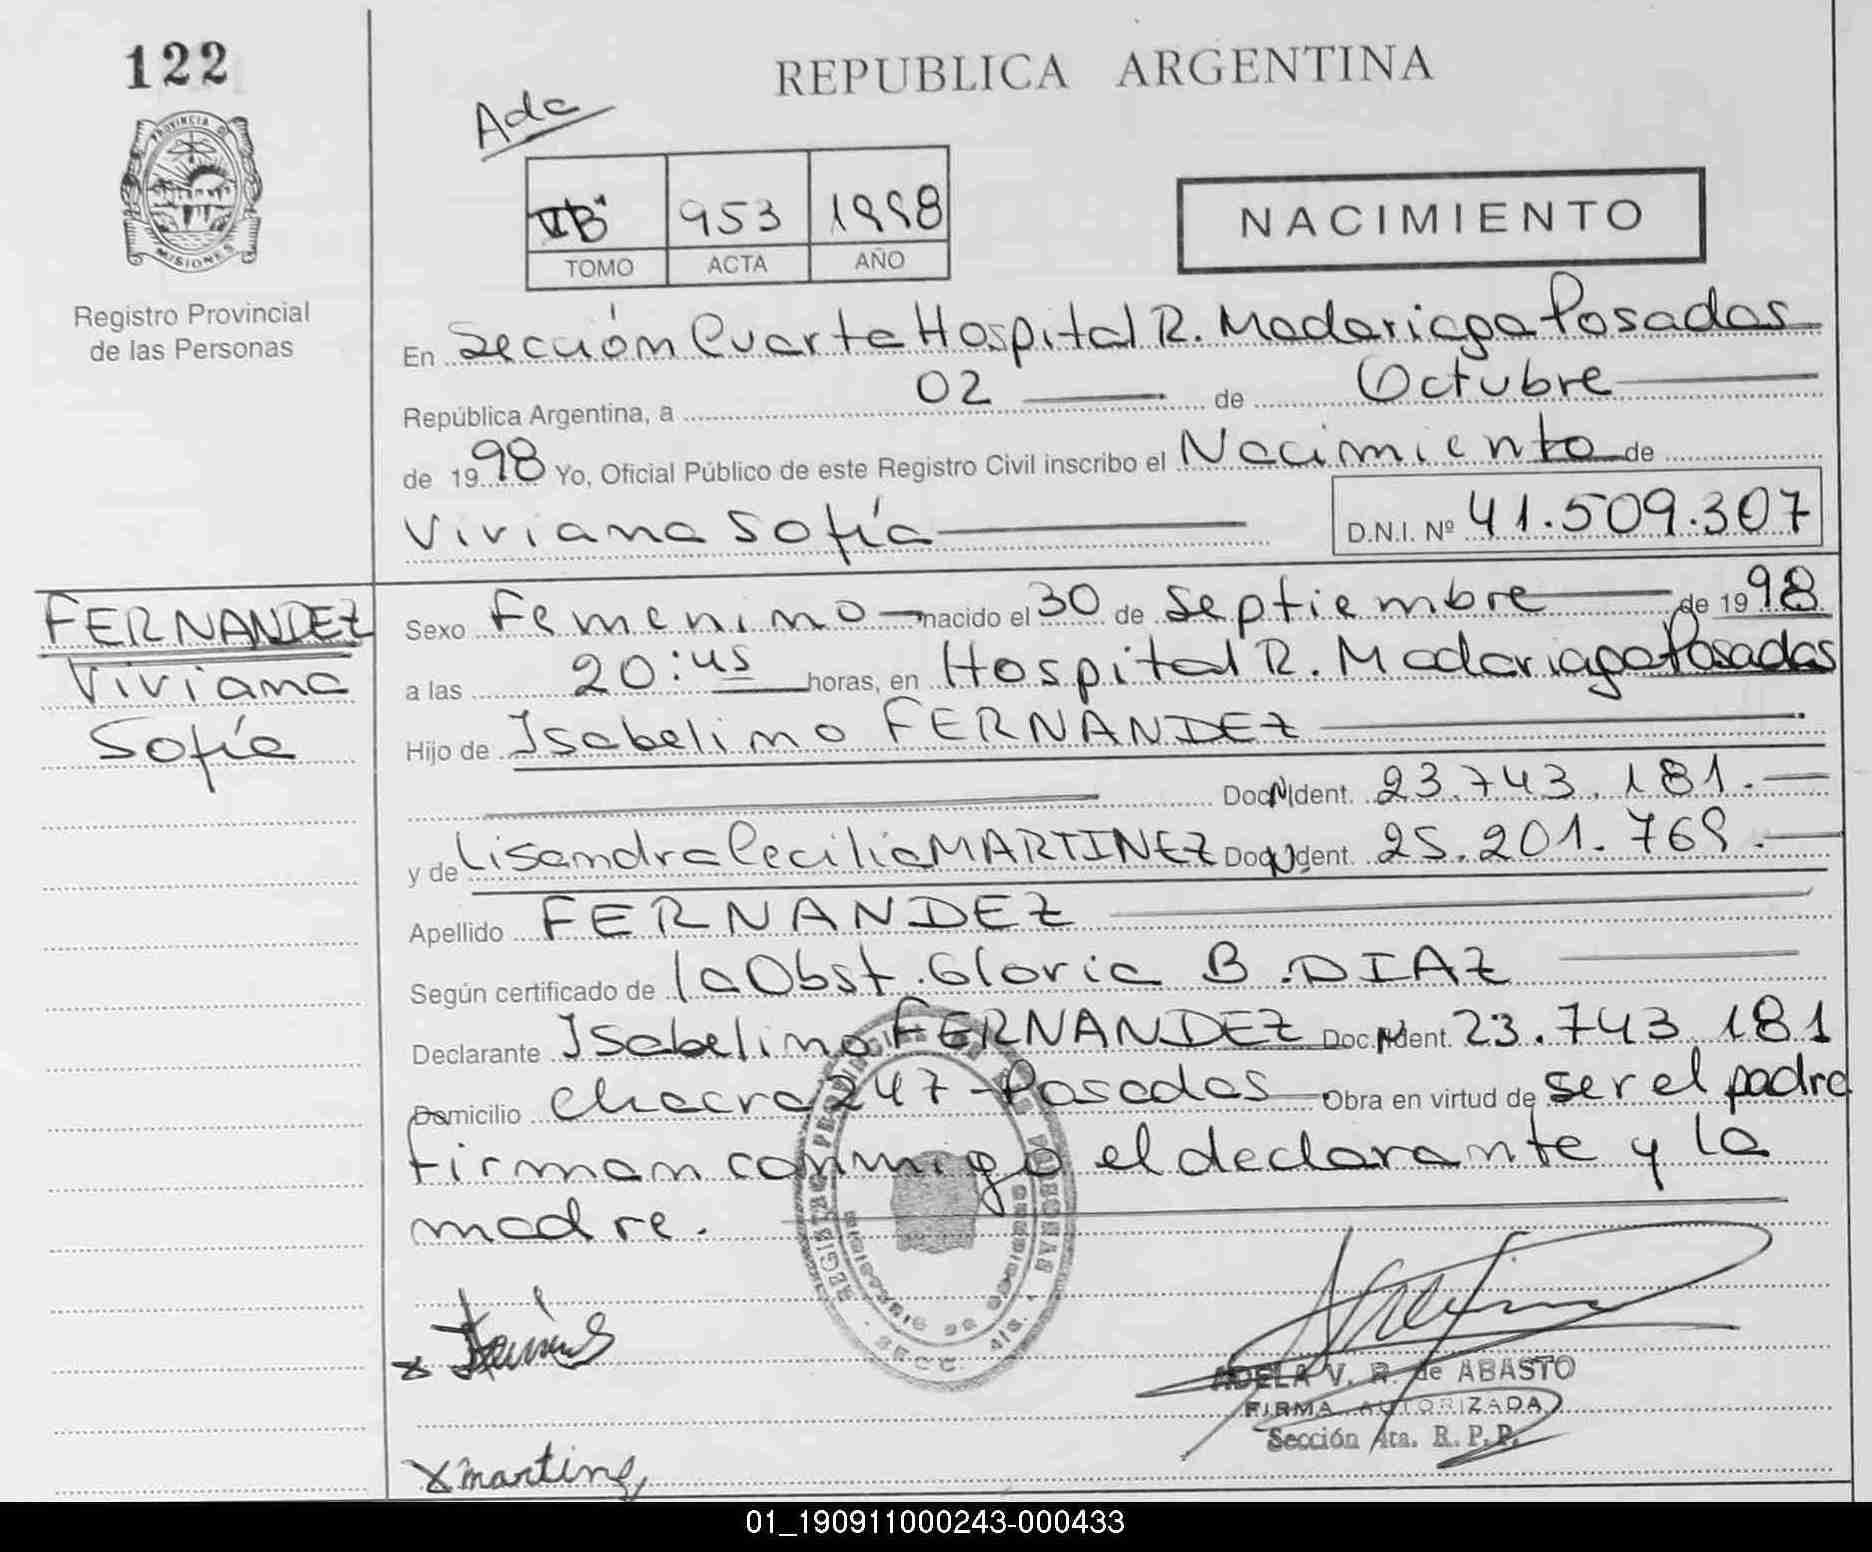 122
REPUBLICA ARGENTINA
Ada
PROVINCIA D
MISIONES
953 1998
TOMO ACTA AÑO
NACIMIENTO
Registro Provincial
de las Personas
En Sección Cuarta Hospital R. Madariaga Posadas
República Argentina, a 02 de Octubre
de 1998 Yo, Oficial Público de este Registro Civil inscribo el Nacimiento de
Viviana Sofía D.N.I. Nº 41.509.307
FERNANDEZ
Viviana
Sofía
Sexo Femenino nacido el 30 de Septiembre de 1998
a las 20:45 horas, en Hospital R. Madariaga Posadas
Hijo de Isabelino FERNANDEZ
Doc. N Ident. 23.743.181.
y de Lisandra Cecilia MARTINEZ Doc. N Ident. 25.201.769.
Apellido FERNANDEZ
Según certificado de la Obst. Gloria B. DIAZ
Declarante Isabelino FERNANDEZ Doc. N Ident. 23.743.181
Domicilio Chacra 247 - Posadas Obra en virtud de ser el padre
firman conmigo el declarante y la
madre.
REGISTRO PROVINCIAL DE LAS PERSONAS
SECC. 4ta.
ADELA V. R. de ABASTO
FIRMA AUTORIZADA
Sección 4ta. R. P. P.
x martinez
01_190911000243-000433